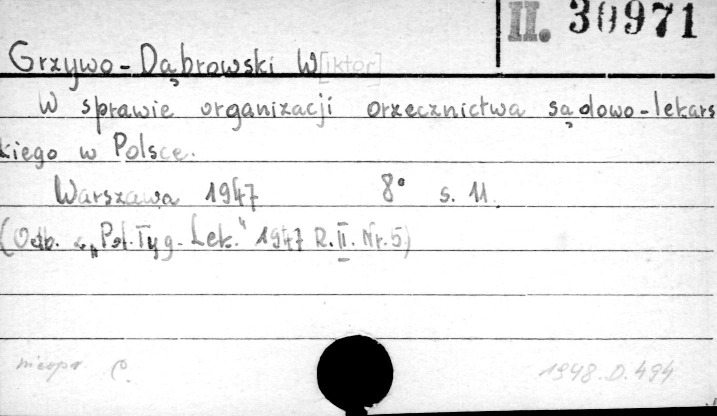 II. 30971
Grzywo-Dąbrowski W[iktor]
W sprawie organizacji orzecznictwa sądowo-lekars
kiego w Polsce.
Warszawa 1947 8° s. 11.
(Odb. z „Pol. Tyg. Lek." 1947 R. II. Nr. 5.)
nieopr 1948.D.494